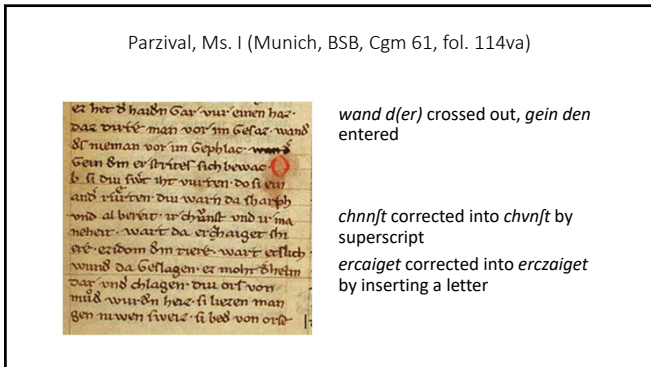 Parzival, Ms. I (Munich, BSB, Cgm 61, fol. 114va)
er het d haidn Gar vur einen haz·
daz tivre man vor im Gesaz· wand
ds nieman vor im Gephlac·
Gein dm er strites sich bewac· O
b si div swt iht vurten· do si ein
and rurten· div warn da sharph
vnd al bereit· ir chunst vnd ir ma
neheit· wart da erzhaiget shi
ere· ezidom dm tiere· wart etslich
wund da Geslagen· ez moht dheim
dar vnd chlagen· div ors von
mud wurdn heiz· si liezen man
gen niwen sweiz· si bed von orse
wand d(er) crossed out, gein den
entered
chnnſt corrected into chvnſt by
superscript
ercaiget corrected into erczaiget
by inserting a letter